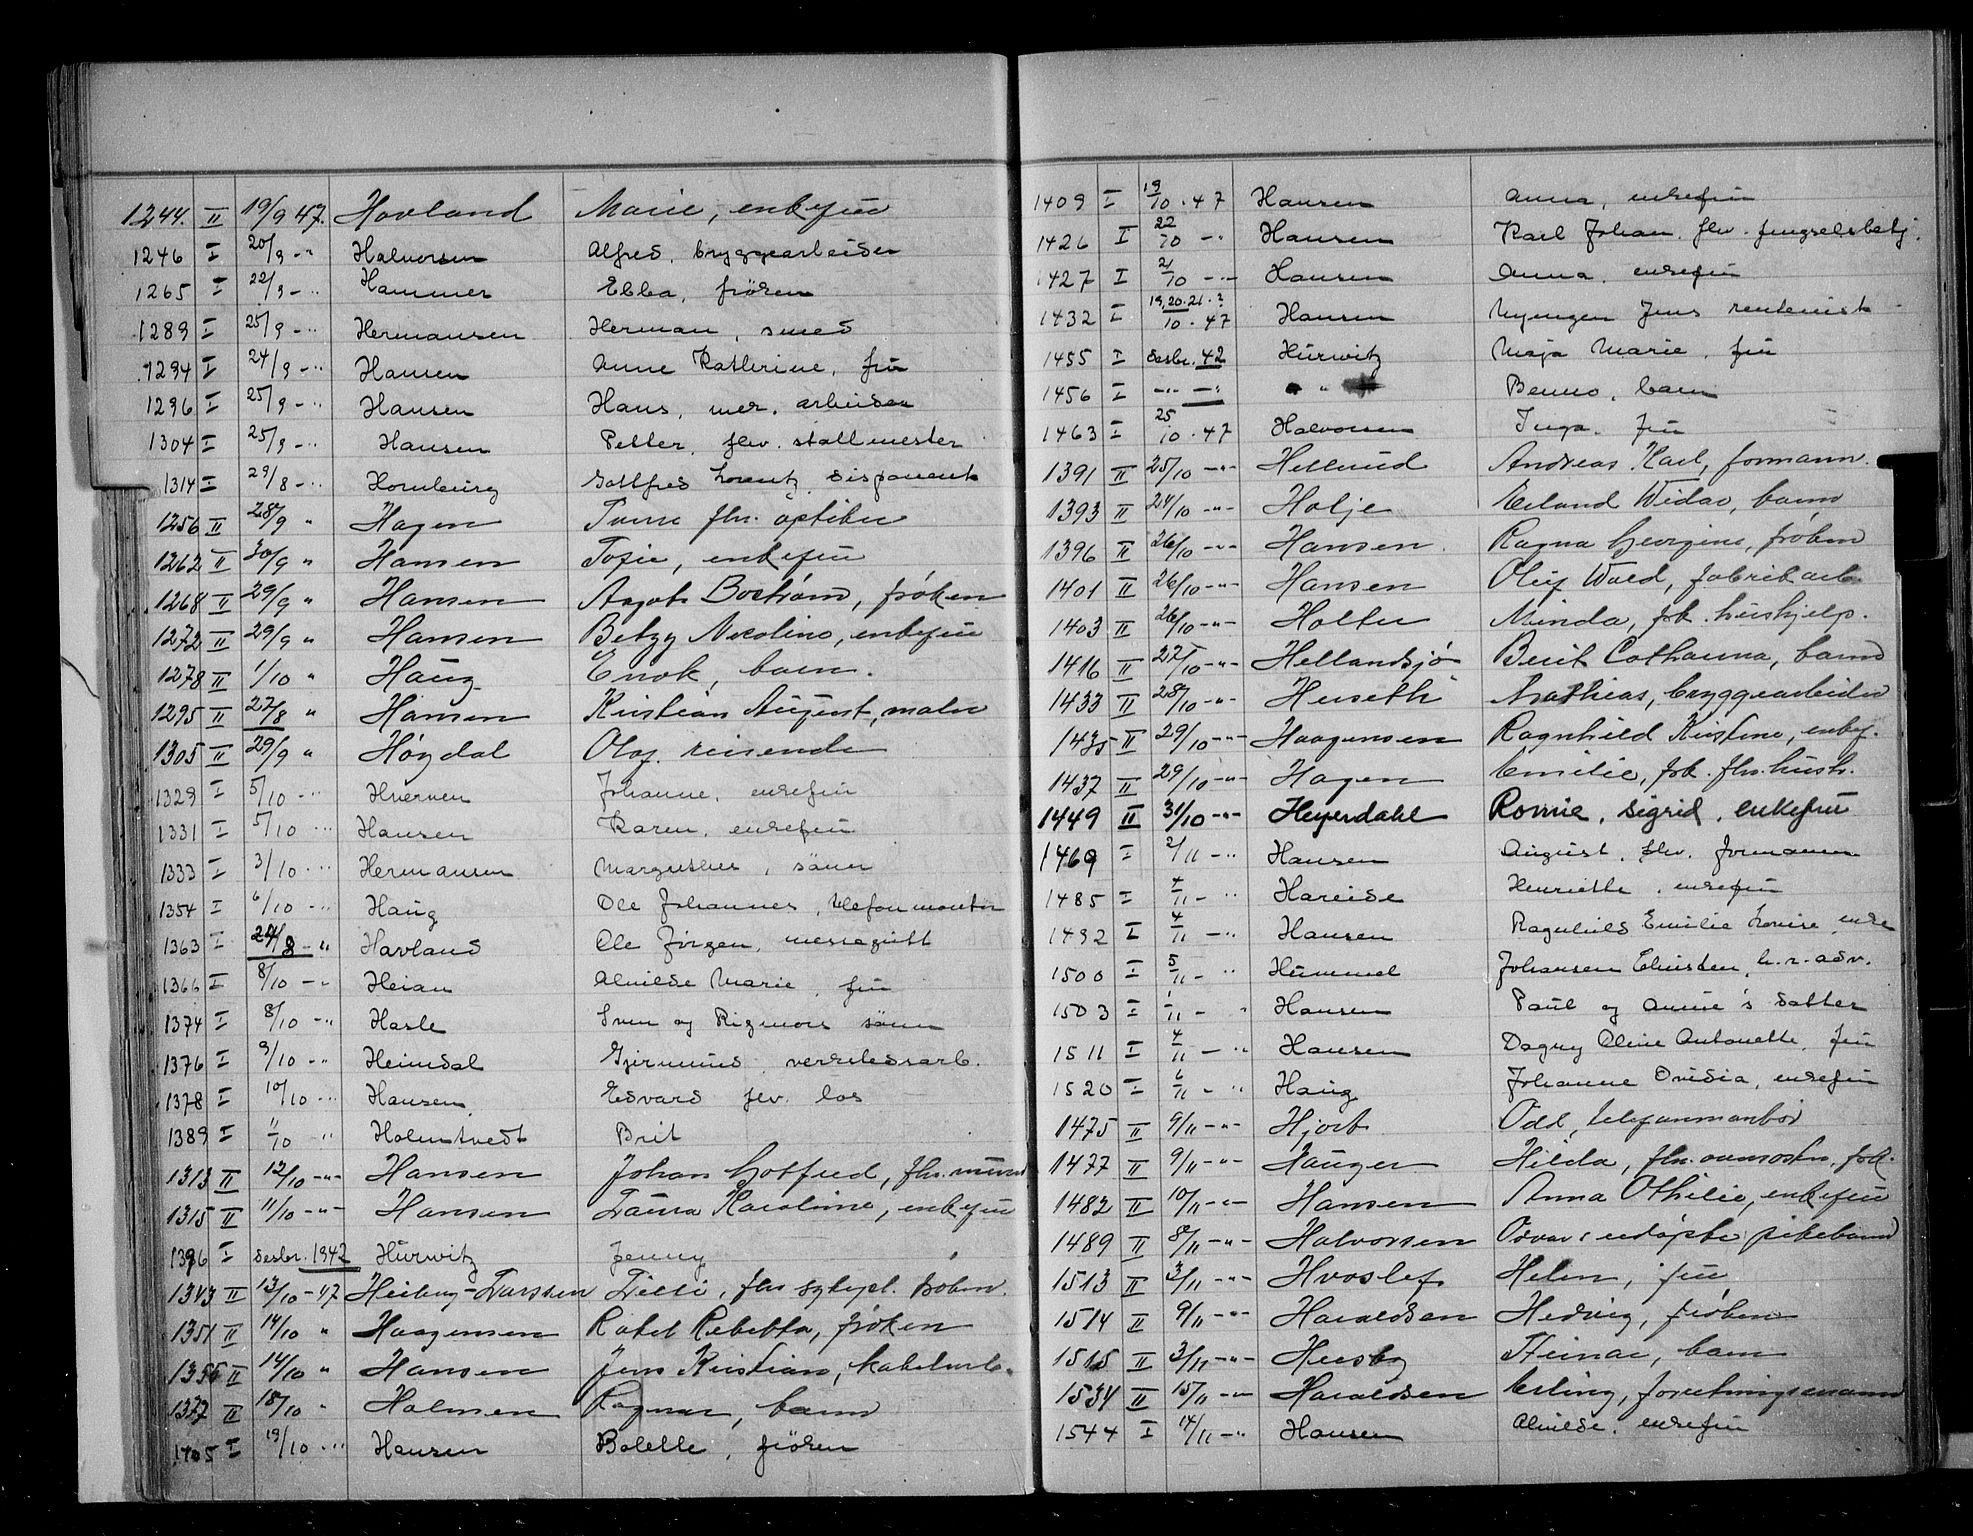 1244. II 19/9 47. Hovland Marie, enkefru
1246 I 20/9 -" Halvorsen Alfred, bryggearbeider
1265 I 22/9 -" Hammer Ebba, frøken
1289 I 25/9 -" Hermansen Herman, smed
1294 I 24/9 -" Hansen Anne Katherine, fru
1296 I 25/9 -" Hansen Hans, arbeider
1304 I 25/9 -" Hansen Petter, fhv. stallmester
1314 I 29/8 -" Hornburg Gottfred Lorentz, disponent
1256 II 28/9 " Hagen fhv. optiker
1262 II 30/9 " Hansen Sofie, enkefru
1268 II 29/9 " Hansen Aagot Bostrøm, frøken
1272 II 29/9 " Hansen Betzy Nicoline, enkefru
1278 II 1/10 " Haug Enok, barn.
1295 II 27/8 " Hansen Kristian August, maler
1305 II 29/9 " Høydal Olaf, reisende
1329 I 5/10 -" Hverven Johanne, enkefru
1331 I 5/10 -" Hansen Karen, enkefru
1333 I 3/10 -" Hermansen sønn
1354 I 6/10 -" Haug Ole Johannes, telefonmontør
1363 I 24/8 -" Havland Ole Jørgen, messegutt
1366 I 8/10 -" Heian Alvilde Marie, fru
1374 I 8/10 -" Hasle Sven og Rigmors sønn
1376 I 9/10 -" Heimdal verkstedsarb.
1378 I 10/10 -" Hansen Edvard fhv. los
1389 I 11/10 -" Holmtvedt Brit
1313 II 12/10 -"- Hansen Johan Gotfred, fhv. murer
1315 II 11/10 -"- Hansen Laura Karoline, enkefru
1396 I desbr. 1942 Hurwitz Jenny
1343 II 13/10 - 47 Heiberg-Larssen fhv sykepl. frøken.
1351 II 14/10 " Haagensen Rakel Rebekka, frøken
1356 II 14/10 " Hansen Jens Kristian, kabelarb.
1377 II 18/10 " Holmen Ragnar, barn
1405 I 19/10 -" Hansen Bolette, frøken
1409 I 19/10 . 47 Hansen Anna, enkefru
1426 I 22/10 -" Hansen Karl Johan, fhv. fengselsbetj.
1427 I 21/10 -" Hansen Anna, enkefru
1432 I 19, 20. 21. ?/10 . 47 Hansen Jens rentenist
1455 I desbr. 42 Hurwitz Maja Marie, fru
1456 I -"- -"- " Benno, barn
1463 I 25/10 . 47 Halvorsen Inga, fru
1391 II 25/10 -"- Hellerud Andreas Karl, formann.
1393 II 24/10 -"- Holje Erland Widar, barn
1396 II 26/10 -"- Hansen Ragna Georgine, frøken
1401 II 26/10 -"- Hansen Oluf Wald, fabrikarb.
1403 II 26/10 -"- Holter Minda, frk. hushjelp.
1416 II 27/10 -"- Hellandsjø Berit Catharina, barn
1433 II 28/10 -"- Huseth Mathias, bryggearbeider
1435 II 29/10 -"- Haagensen Ragnhild Kristine, enkef.
1437 II 29/10 -"- Hagen Emilie, frk. fhv. hush.
1449 II 31/10 -"- Heyerdahl Romie, Sigrid, enkefru
1469 I 2/11 -" Hansen August, fhv. formann
1485 I 4/11 -" Hareide Henriette, enkefru
1492 I 4/11 -" Hansen Ragnhild Emilie Lovise, enke
1500 I 5/11 -" Hummel Johansen Christen, h.r.adv.
1503 I 1/11 -" Hansen Paul og Annie's datter
1511 I 4/11 -" Hansen Dagny Aline Antonette, fru
1520 I 6/11 -" Haug Johanne Ovidia, enkefru
1475 II 9/11 -"- Hjort Odd, telefonmontør
1477 II 9/11 -"- Hauger Hilda, fhv.
1482 II 10/11 -"- Hansen Anna Othilie, enkefru
1489 II 8/11 -"- Halvorsen Odvar's udøpte pikebarn
1513 II 3/11 -"- Hvoslef Helen, fru
1514 II 9/11 -"- Haraldsen Hedvig, frøken
1515 II 3/11 -"- Heesby Steinar, barn
1534 II 15/11 -"- Haraldsen Erling, forretningsmann
1544 I 14/11 -" Hansen Alvilde, enkefru